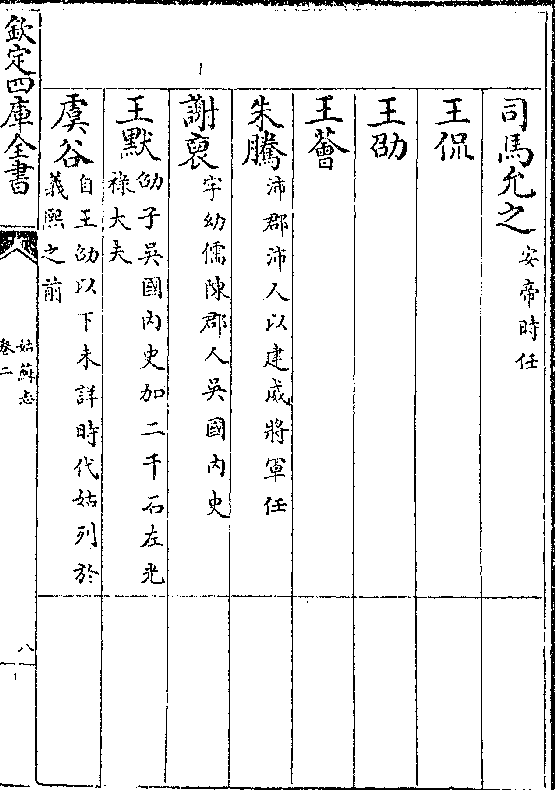 司馬允之安帝時任
王侃
王劭
王薈
朱騰沛郡沛人以建威將軍任
謝裒字幼儒陳郡人吳國內史
王默劭子吳國內史加二千石左光
祿大夫
虞谷自王劭以下未詳時代姑列於
義熙之前
欽定四庫全書
姑蘇志
卷二
八